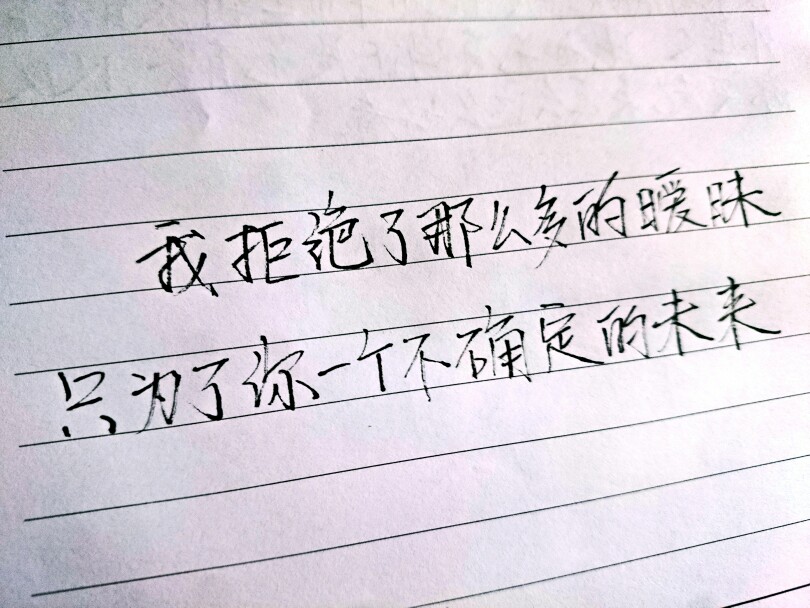 我拒绝了那么多的暧昧
只为了你一个不确定的未来